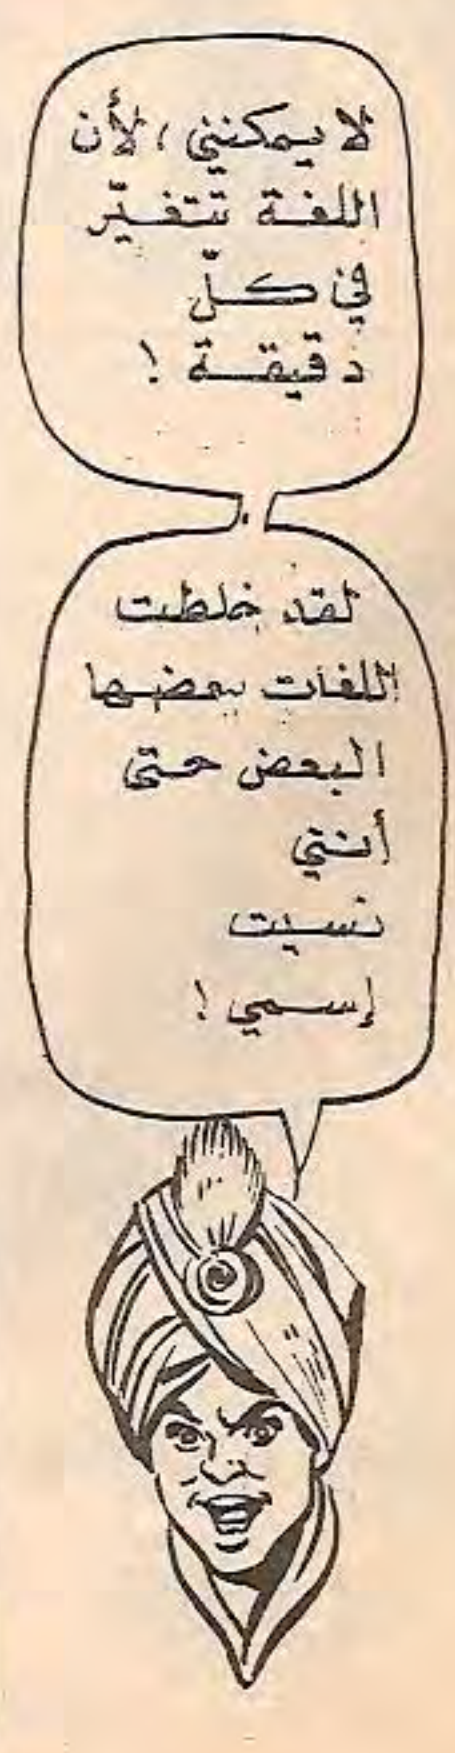 لا يمكنني ، لأن
اللغة تتغيّر
في كلّ
دقيقة !
لقد خلطت
اللغات ببعضها
البعض حتى
أنني
نسيت
إسمي !